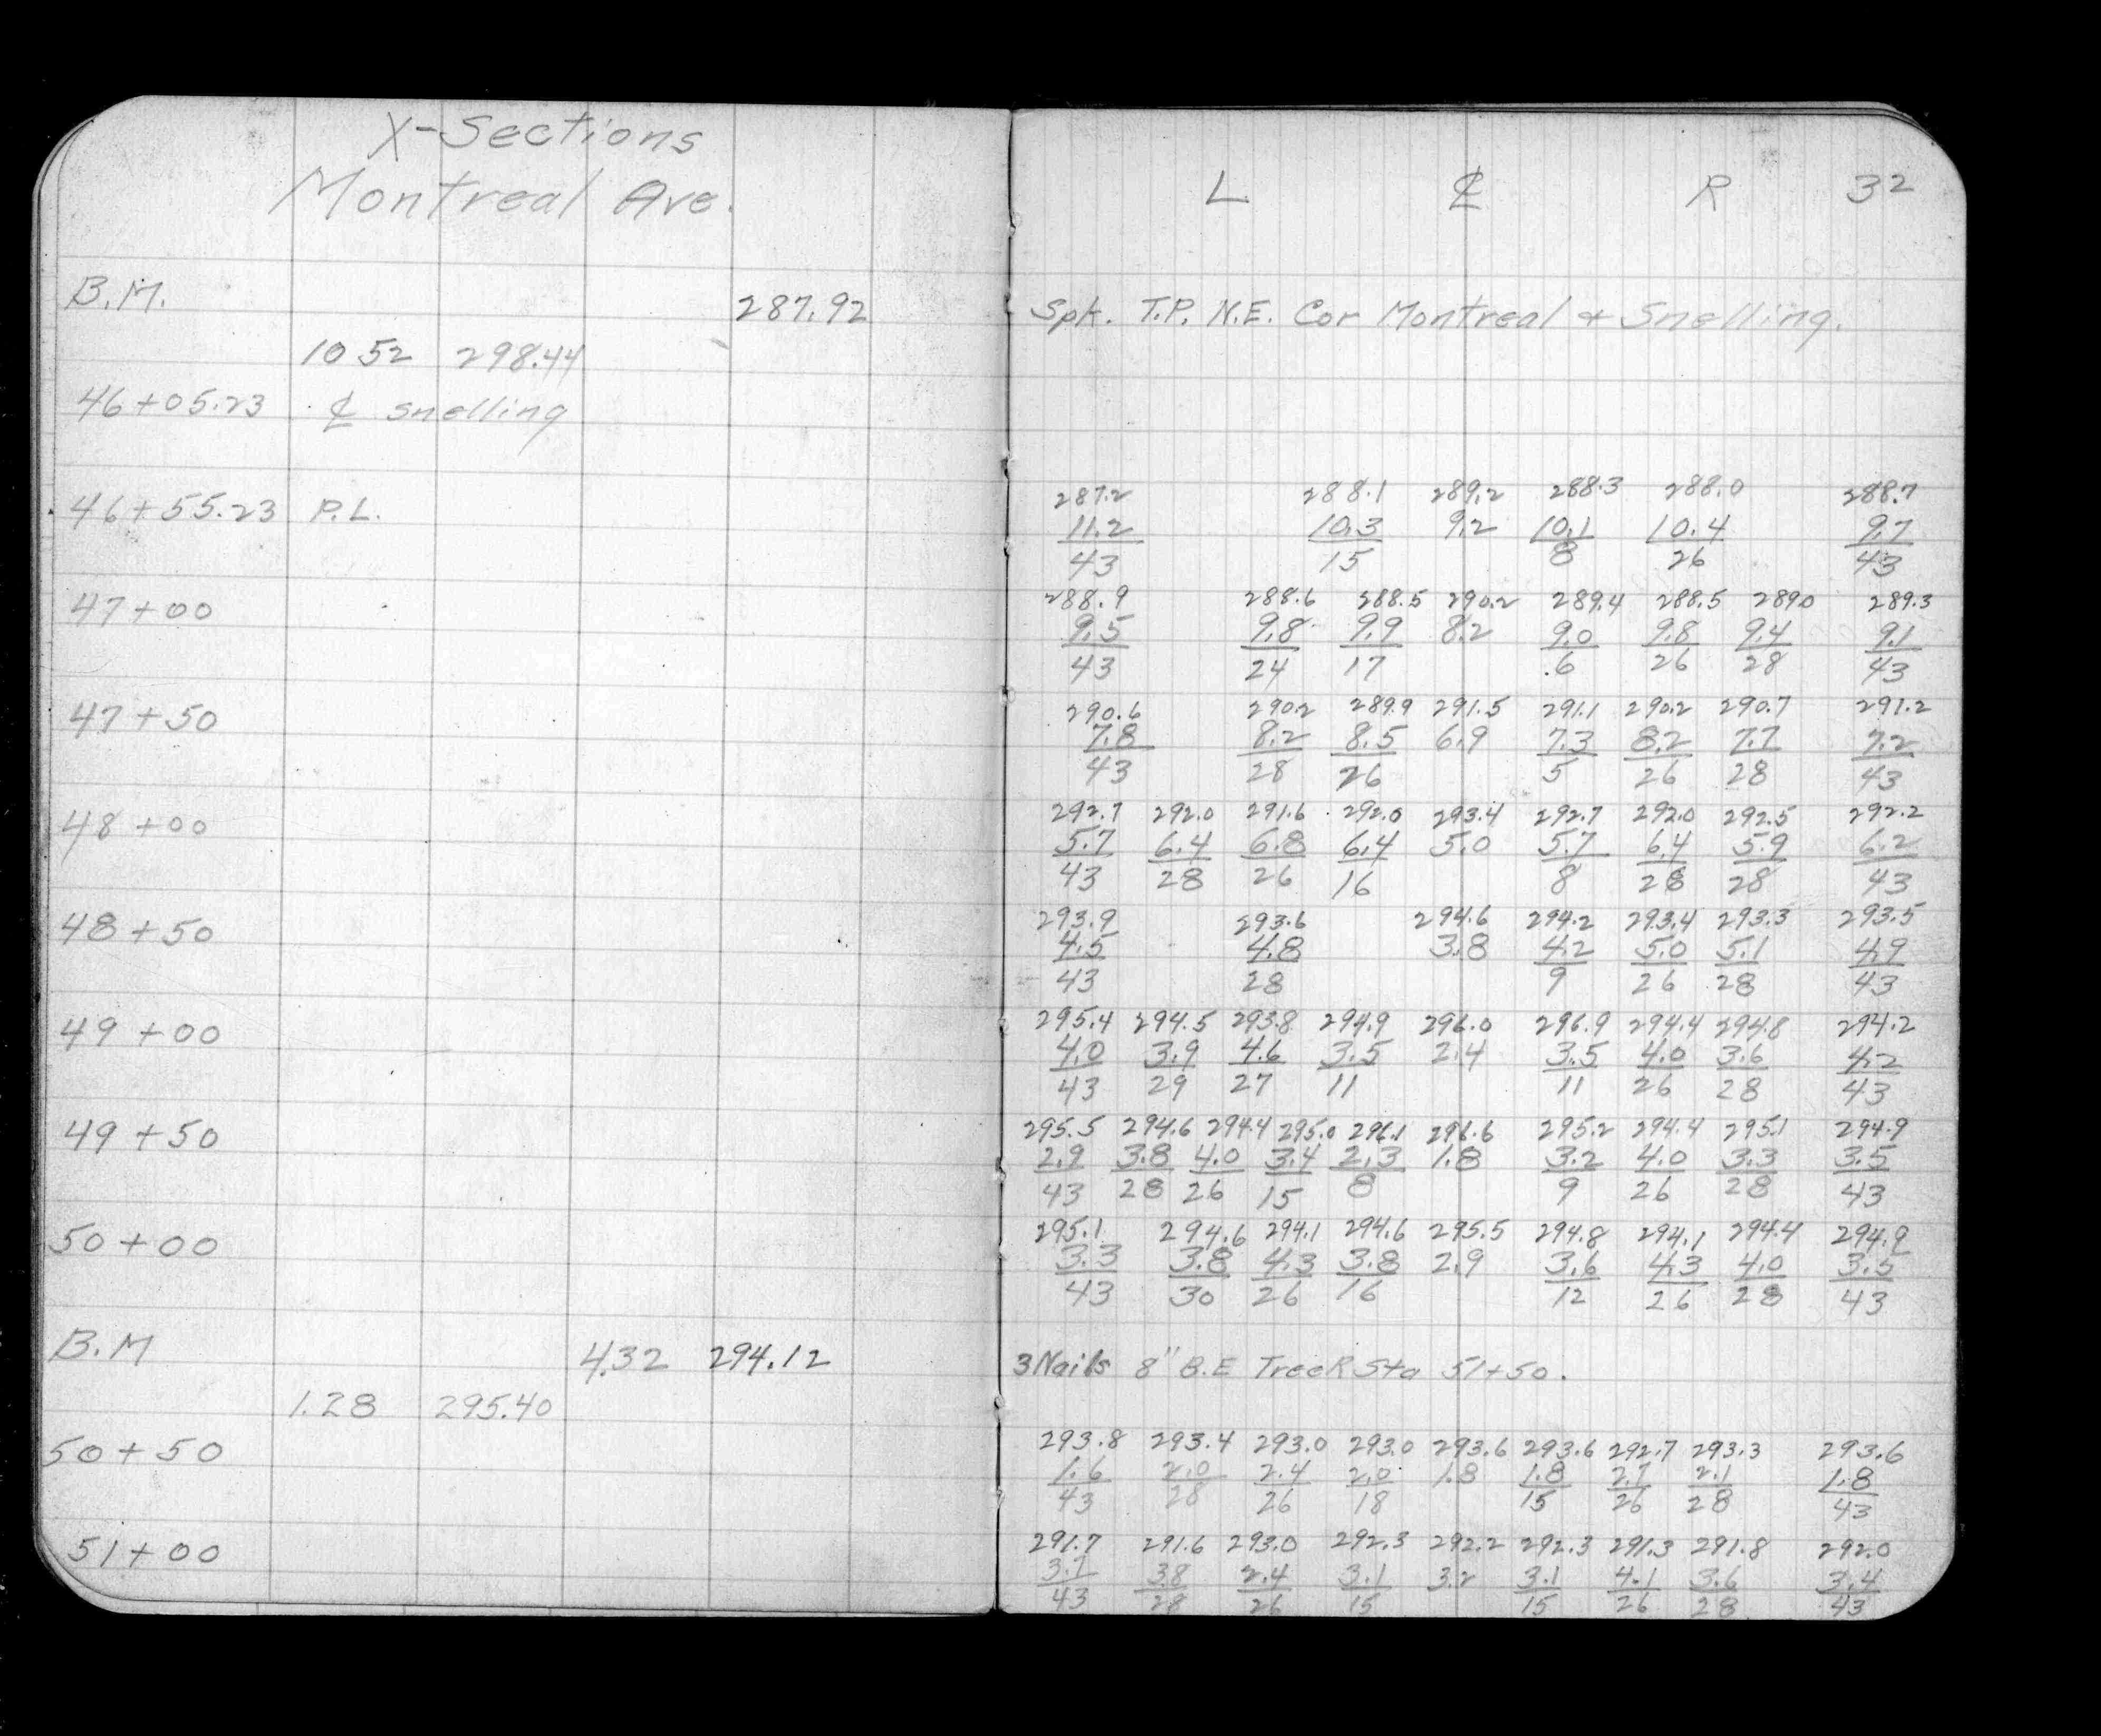 X-Sections
Montreal Ave.
B.M. 287.92
10 52 298.44
46+05.23 ℄ snelling
46+55.23 P.L.
47+00
47+50
48+00
48+50
49+00
49+50
50+00
B.M 4.32 294.12
1.28 295.40
50+50
51+00
L ℄ R 32
Spk. T.P. N.E. Cor Montreal + Snelling.
287.2 288.1 289.2 288.3 288.0 288.7
11.2 10.3 9.2 10.1 10.4 9.7
43 15 8 26 43
288.9 288.6 288.5 290.2 289.4 288.5 289.0 289.3
9.5 9.8 9.9 8.2 9.0 9.8 9.4 9.1
43 24 17 .6 26 28 43
290.6 290.2 289.9 291.5 291.1 290.2 290.7 291.2
7.8 8.2 8.5 6.9 7.3 8.2 7.7 7.2
43 28 26 5 26 28 43
292.7 292.0 291.6 292.0 293.4 292.7 292.0 292.5 292.2
5.7 6.4 6.8 6.4 5.0 5.7 6.4 5.9 6.2
43 28 26 16 8 28 28 43
293.9 293.6 294.6 294.2 293.4 293.3 293.5
4.5 4.8 3.8 4.2 5.0 5.1 4.9
43 28 9 26 28 43
295.4 294.5 293.8 294.9 296.0 296.9 294.4 294.8 294.2
4.0 3.9 4.6 3.5 2.4 3.5 4.0 3.6 4.2
43 29 27 11 11 26 28 43
295.5 294.6 294.4 295.0 296.1 296.6 295.2 294.4 295.1 294.9
2.9 3.8 4.0 3.4 2.3 1.8 3.2 4.0 3.3 3.5
43 28 26 15 8 9 26 28 43
295.1 294.6 294.1 294.6 295.5 294.8 294.1 294.4 294.9
3.3 3.8 4.3 3.8 2.9 3.6 4.3 4.0 3.5
43 30 26 16 12 26 28 43
3 Nails 8" B.E Tree R Sta 51+50.
293.8 293.4 293.0 293.0 293.6 293.6 292.7 293.3 293.6
1.6 2.0 2.4 2.0 1.8 1.8 2.7 2.1 1.8
43 28 26 18 15 26 28 43
291.7 291.6 293.0 292.3 292.2 292.3 291.3 291.8 292.0
3.7 3.8 2.4 3.1 3.2 3.1 4.1 3.6 3.4
43 28 26 15 15 26 28 43